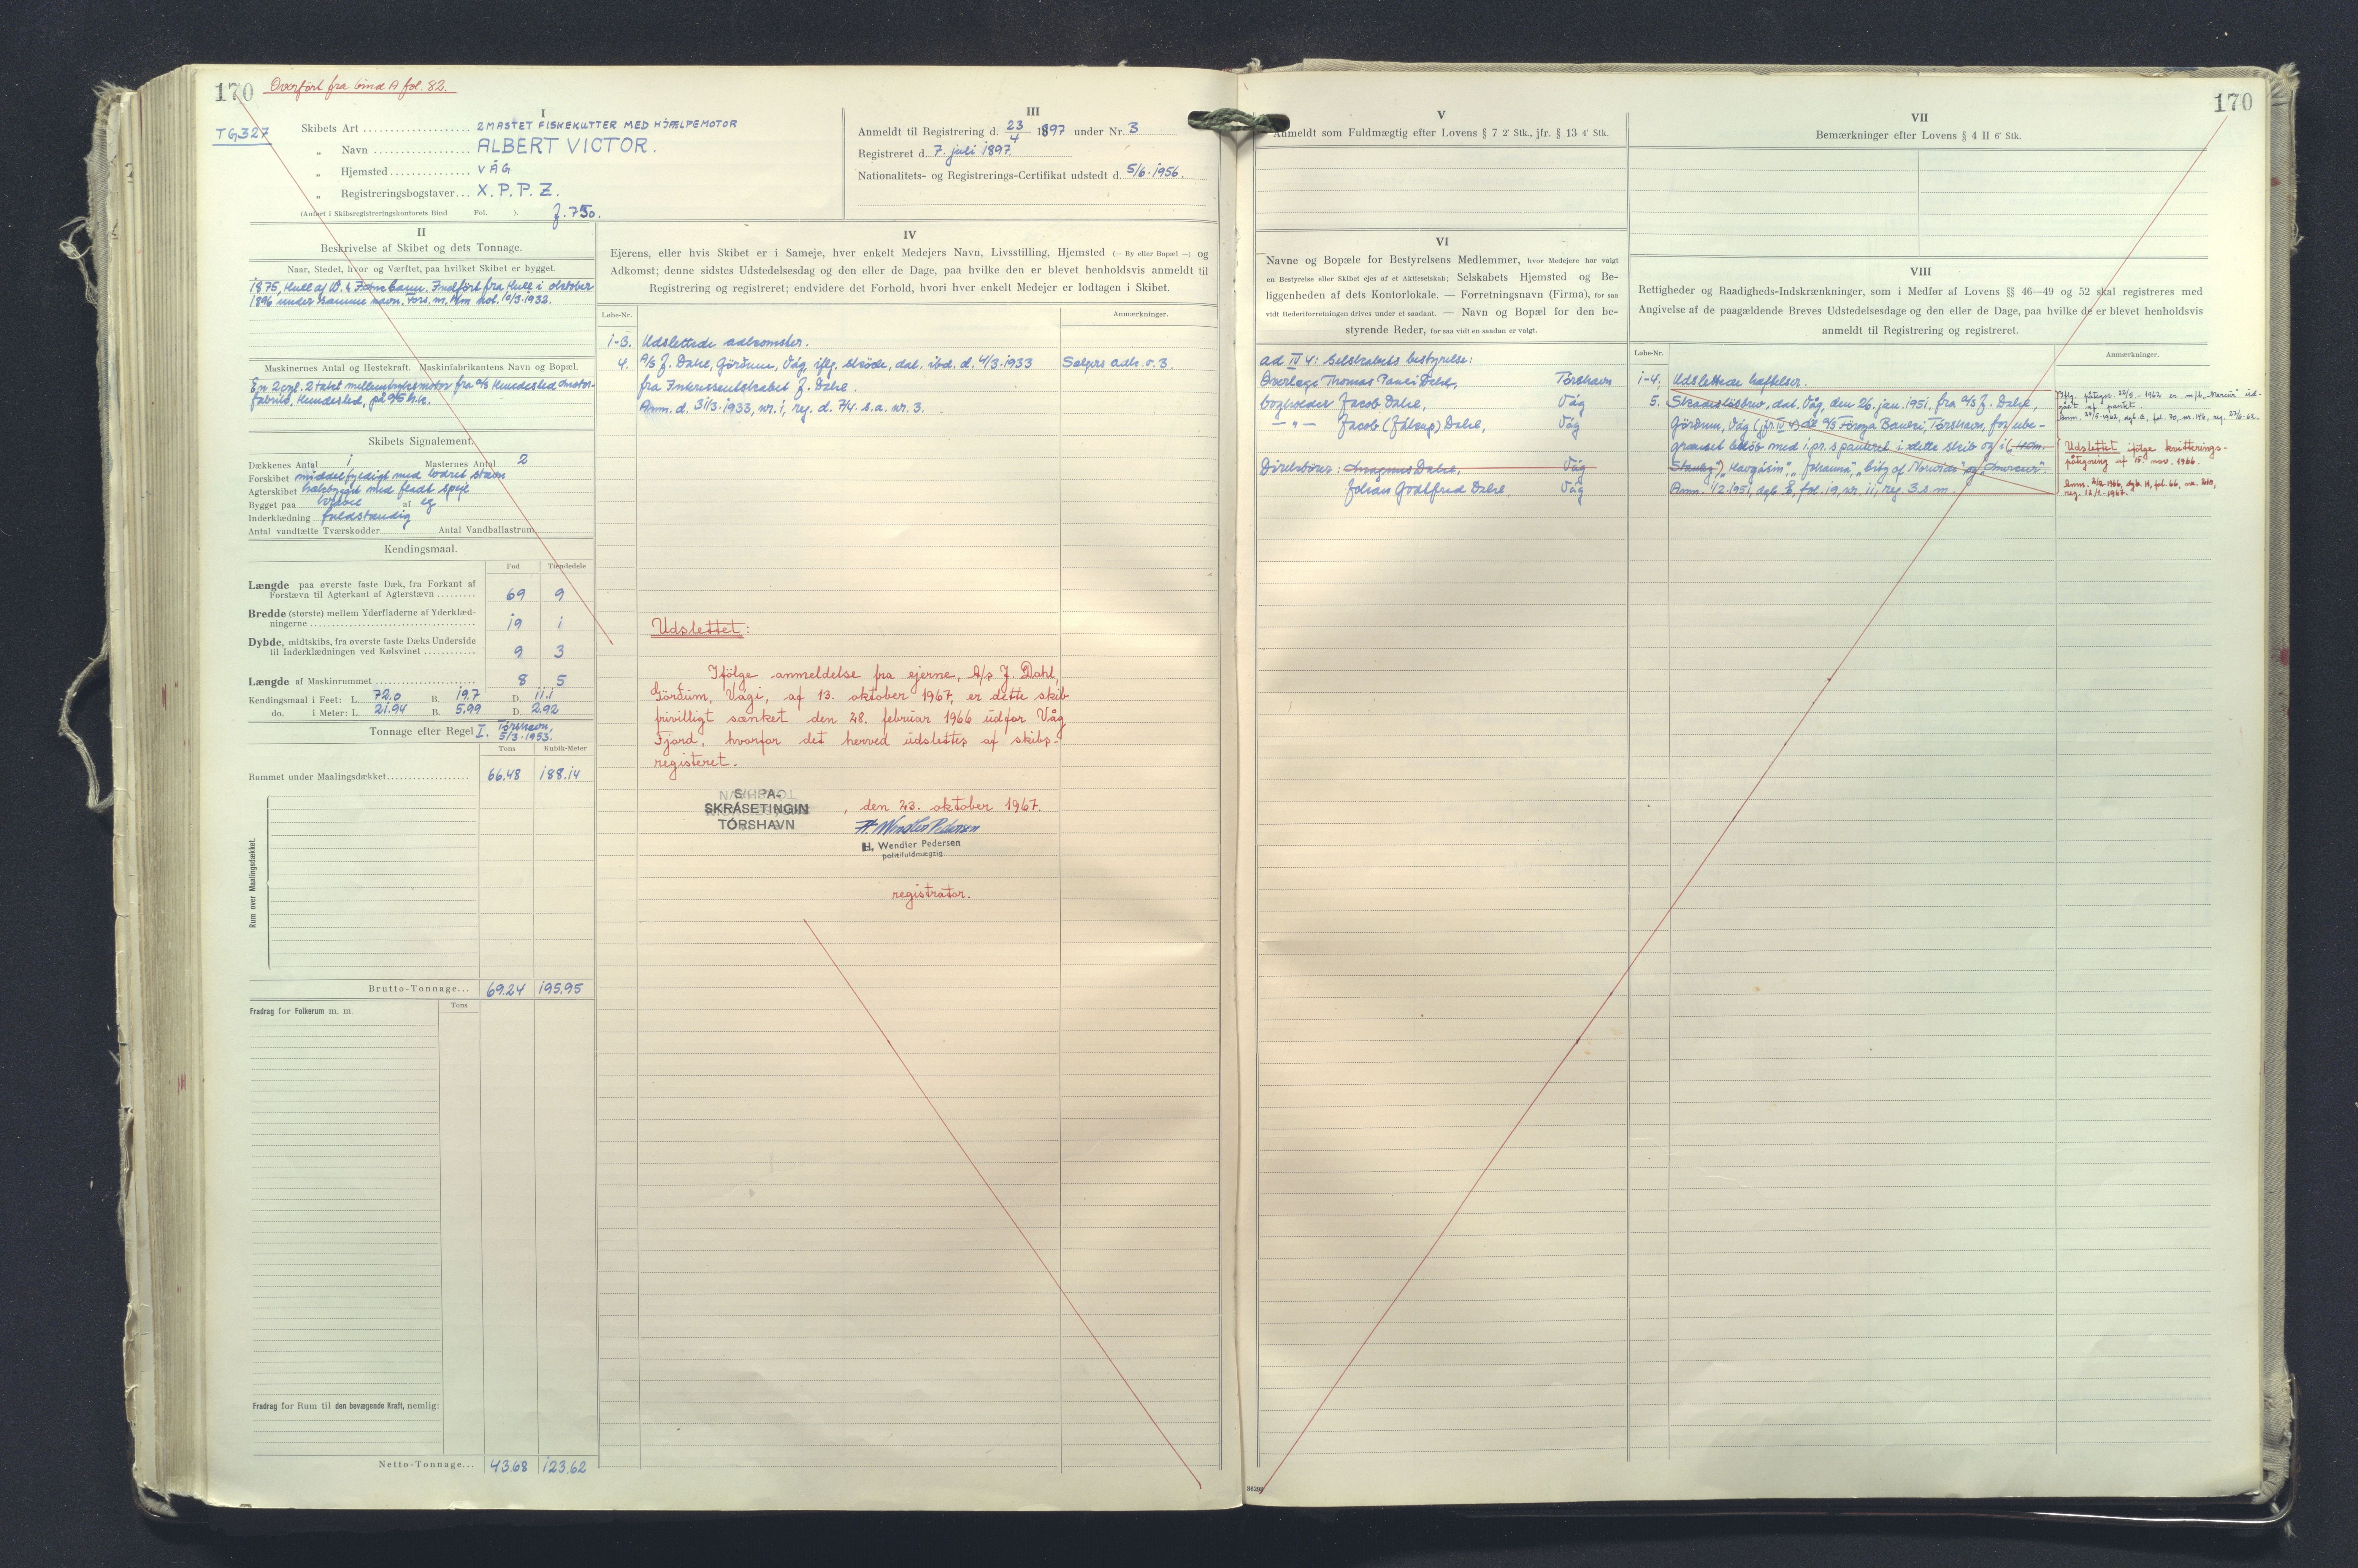 170
Overført fra bind A fol. 82.
TG327
I
Skibets Art 2MASTET FISKEKUTTER MED HJÆLPEMOTOR
„ Navn ALBERT VICTOR.
„ Hjemsted VÁG
„ Registreringsbogstaver... X.P.P.Z.
(Anført i Skibsregistreringskontorets Bind Fol. ).
II
Beskrivelse af Skibet og dets Tonnage.
Naar, Stedet, hvor og Værftet, paa hvilket Skibet er bygget.
1875, Hull af Indført fra Hull i oktober
1896 under samme navn. 10/3.1932.
Maskinernes Antal og Hestekraft. Maskinfabrikantens Navn og Bopæl.
En 2cyl. 2takt mellemtryksmotor fra a/s Hundested motor-
fabrik, Hundested, på h.k.
Skibets Signalement.
Dækkenes Antal 1 Masternes Antal 2
Forskibet middelfyldigt med lodret stævn
Agterskibet med fladt spejl
Bygget paa kravel af eg
Inderklædning fuldstændig
Antal vandtætte Tværskodder Antal Vandballastrum
Kendingsmaal.
Fod Tiendedele
Længde paa øverste faste Dæk, fra Forkant af
Forstævn til Agterkant af Agterstævn 69 9
Bredde (største) mellem Yderfladerne af Yderklæd-
ningerne 19 1
Dybde, midtskibs, fra øverste faste Dæks Underside
til Inderklædningen ved Kølsvinet 9 3
Længde af Maskinrummet 8 5
Kendingsmaal i Feet: L. 72.0 B. 19.7 D. 11.1
do. i Meter: L. 21.94 B. 5.99 D. 2.92
Tonnage efter Regel I. Tórshavn,
5/3.1953.
Tons Kubik-Meter
Rummet under Maalingsdækket 66.48 188.14
Rum over Maalingsdækket.
Brutto-Tonnage... 69.24 195.95
Fradrag for Folkerum m. m. Tons
Fradrag for Rum til den bevægende Kraft, nemlig:
Netto-Tonnage... 43.68 123.62
III
Anmeldt til Registrering d. 23/4 1897 under Nr. 3
Registreret d. 7. juli 1897.
Nationalitets- og Registrerings-Certifikat udstedt d. 5/6.1956.
IV
Ejerens, eller hvis Skibet er i Sameje, hver enkelt Medejers Navn, Livsstilling, Hjemsted (— By eller Bopæl —) og
Adkomst; denne sidstes Udstedelsesdag og den eller de Dage, paa hvilke den er blevet henholdsvis anmeldt til
Registrering og registreret; endvidere det Forhold, hvori hver enkelt Medejer er lodtagen i Skibet.
Løbe-Nr. Anmærkninger.
1-3. Udslettede adkomster.
4. A/S J. Dahl, Görðum, Vág, iflg. skøde, dat. ibd. d. 4/3.1933 Sælgers adk. v. 3.
fra Interessentskabet J. Dahl.
Anm. d. 31/3.1933, nr. 1, reg. d. 7/4. s.a. nr. 3.
Udslettet:
Ifølge anmeldelse fra ejerne, A/s J. Dahl,
Görðum, Vági, af 13. oktober 1967, er dette skib
frivilligt sænket den 28. februar 1966 udfor Våg
Fjord, hvorfor det herved udslettes af skibs-
registeret.
SKIPA-
SKRÁSETINGIN
TÓRSHAVN
, den 23. oktober 1967.
H. Wendler Pedersen
H. Wendler Pedersen
politifuldmægtig
registrator.
170
V
Anmeldt som Fuldmægtig efter Lovens § 7 2' Stk., jfr. § 13 4' Stk.
VI
Navne og Bopæle for Bestyrelsens Medlemmer, hvor Medejere har valgt
en Bestyrelse eller Skibet ejes af et Aktieselskab; Selskabets Hjemsted og Be-
liggenheden af dets Kontorlokale. — Forretningsnavn (Firma), for saa
vidt Rederiforretningen drives under et saadant. — Navn og Bopæl for den be-
styrende Reder, for saa vidt en saadan er valgt.
ad IV 4: Selskabets bestyrelse:
Overlæge Thomas Pauli Dahl, Tórshavn
bogholder Jacob Dahl, Vág
— „ — Jacob (Jákup) Dahl, Vág
Direktører: Magnus Dahl, Vág
Jóhan Godtfred Dahl, Vág
VII
Bemærkninger efter Lovens § 4 II 6' Stk.
VIII
Rettigheder og Raadigheds-Indskrænkninger, som i Medfør af Lovens §§ 46—49 og 52 skal registreres med
Angivelse af de paagældende Breves Udstedelsesdage og den eller de Dage, paa hvilke de er blevet henholdsvis
anmeldt til Registrering og registreret.
Løbe-Nr. Anmærkninger.
1-4. Udslettede hæftelser.
5. Skadesløsbrev, dat. Våg, den 26. jan. 1951, fra a/s J. Dahl,
Görðum, Våg (jfr. IV 4) til a/s Føroya Banki, Tórshavn, for ube-
grænset beløb med 1. pr. s. panteret i dette skib og i
„Havgásin", „Johanna", „City of Norwich" og „Mercur".
Anm. 1/2.1951, dgb. E, fol. 19, nr. 11, reg. 3.s.m.
Iflg. påtegn. 22/5 - 1962 er m/k „Mercur" ud-
gået af pantet
Udslettet ifølge kvitterings-
påtegning af 15. nov. 1966.
reg. 12/1-1967.